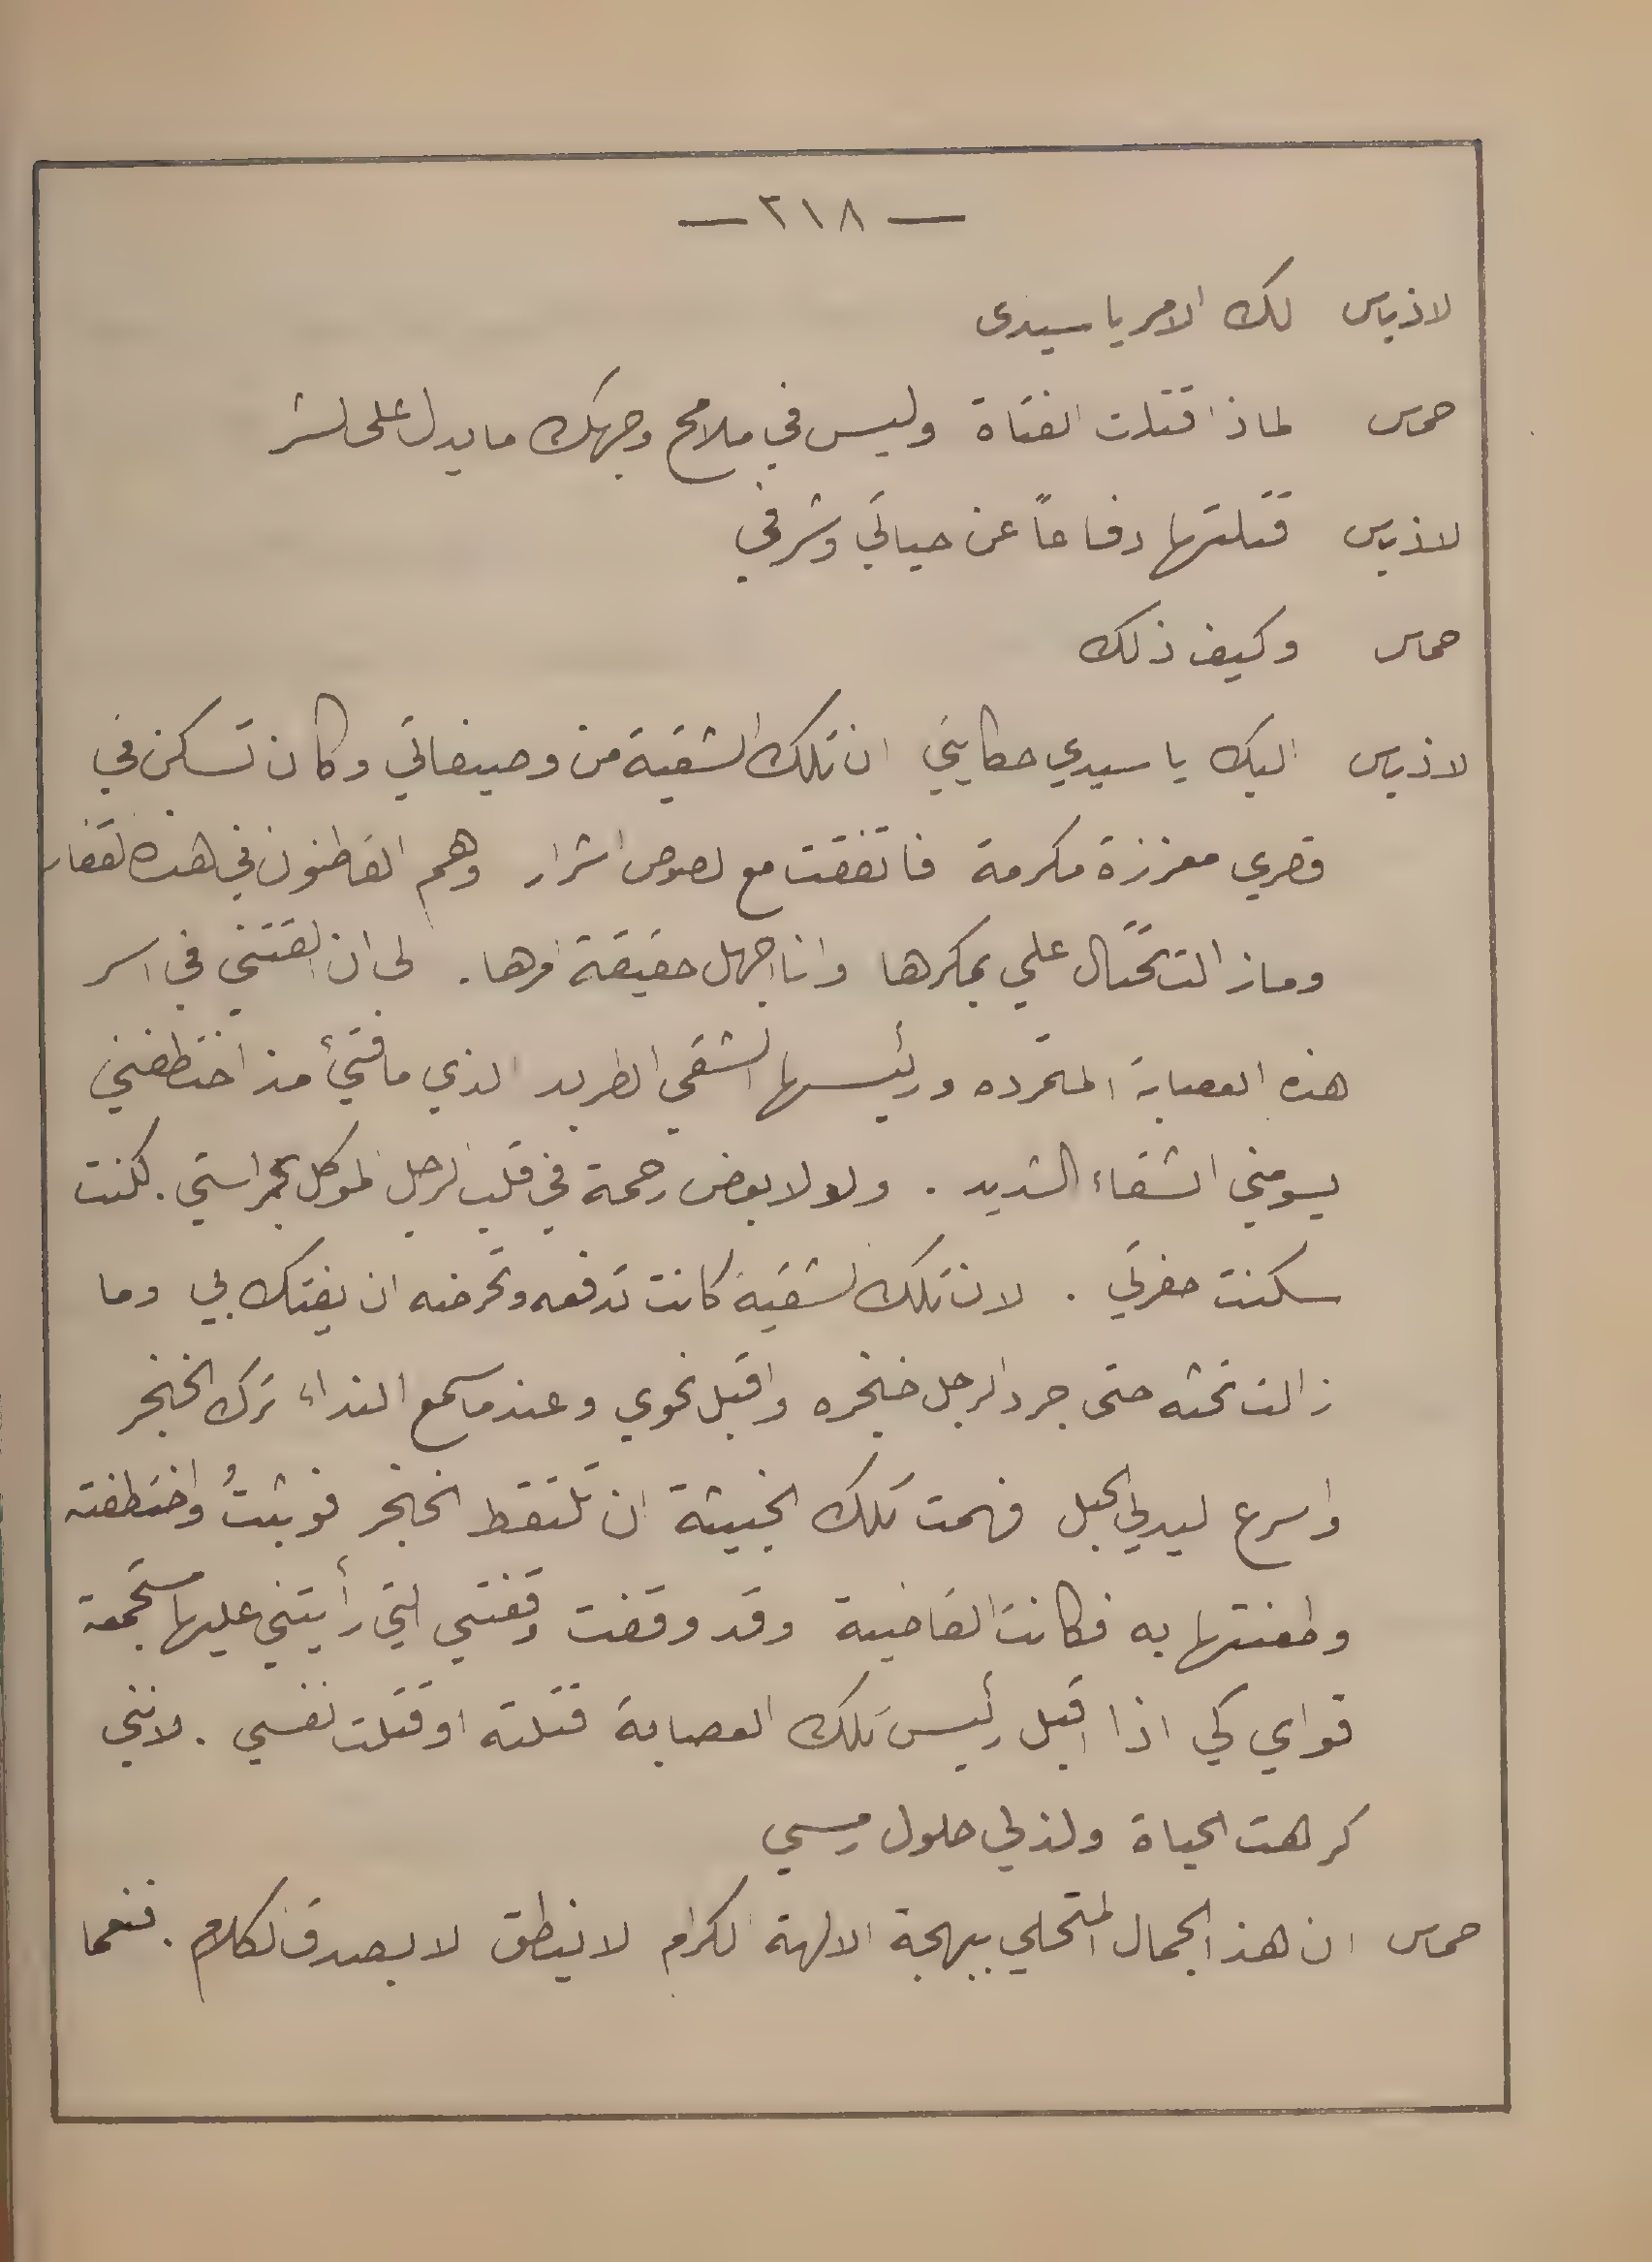 — ٢١٨ —
لاذيس لك الامر يا سيدى
حماس لماذا قتلت الفتاة وليس في ملامح وجهك ما يدل على الشر
لاذيس قتلتها دفاعاً عن حياتي وشرفي
حماس وكيف ذلك
لاذياس اليك يا سيدي حكايتي ان تلك الشقية من وصيفاتي وكان تسكن في
قصري معززة مكرمة فاتفقت مع لصوص اشرار وهم القاطنون في هذه القفار
وما زالت تحتال علي بمكرها وانا اجهل حقيقة امرها . الى ان القتني في اسر
هذه العصابة المتمرده ورئيسها الشقي الطريد الذي ما فتئ مذ اختطفني
يسومني الشقاء الشديد . ولولا بعض رحمة في قلب الرجل الموكل بحراستي . لكنت
سكنت حفرتي . لان تلك الشقية كانت تدفعه وتحرضه ان يفتك بي وما
زالت تحثه حتى جرد الرجل خنجره واقبل نحوي وعندما سمع النداء ترك الخنجر
واسرع ليدلي الحبل فهمت تلك الخبيثة ان تلتقط الخنجر فوثبتُ واختطفته
وطعنتها به فكانت القاضية وقد وقفت وقفتي التي رأيتني عليها مستجمعة
قواي كي اذا اقبل رئيس تلك العصابة قتلته او قتلت نفسي . لانني
كرهت الحياة ولذ لي حلول رمسي
حماس ان هذا الجمال المتحلي ببهجة الالهة الكرام لا ينطق لا بصدق الكلام .